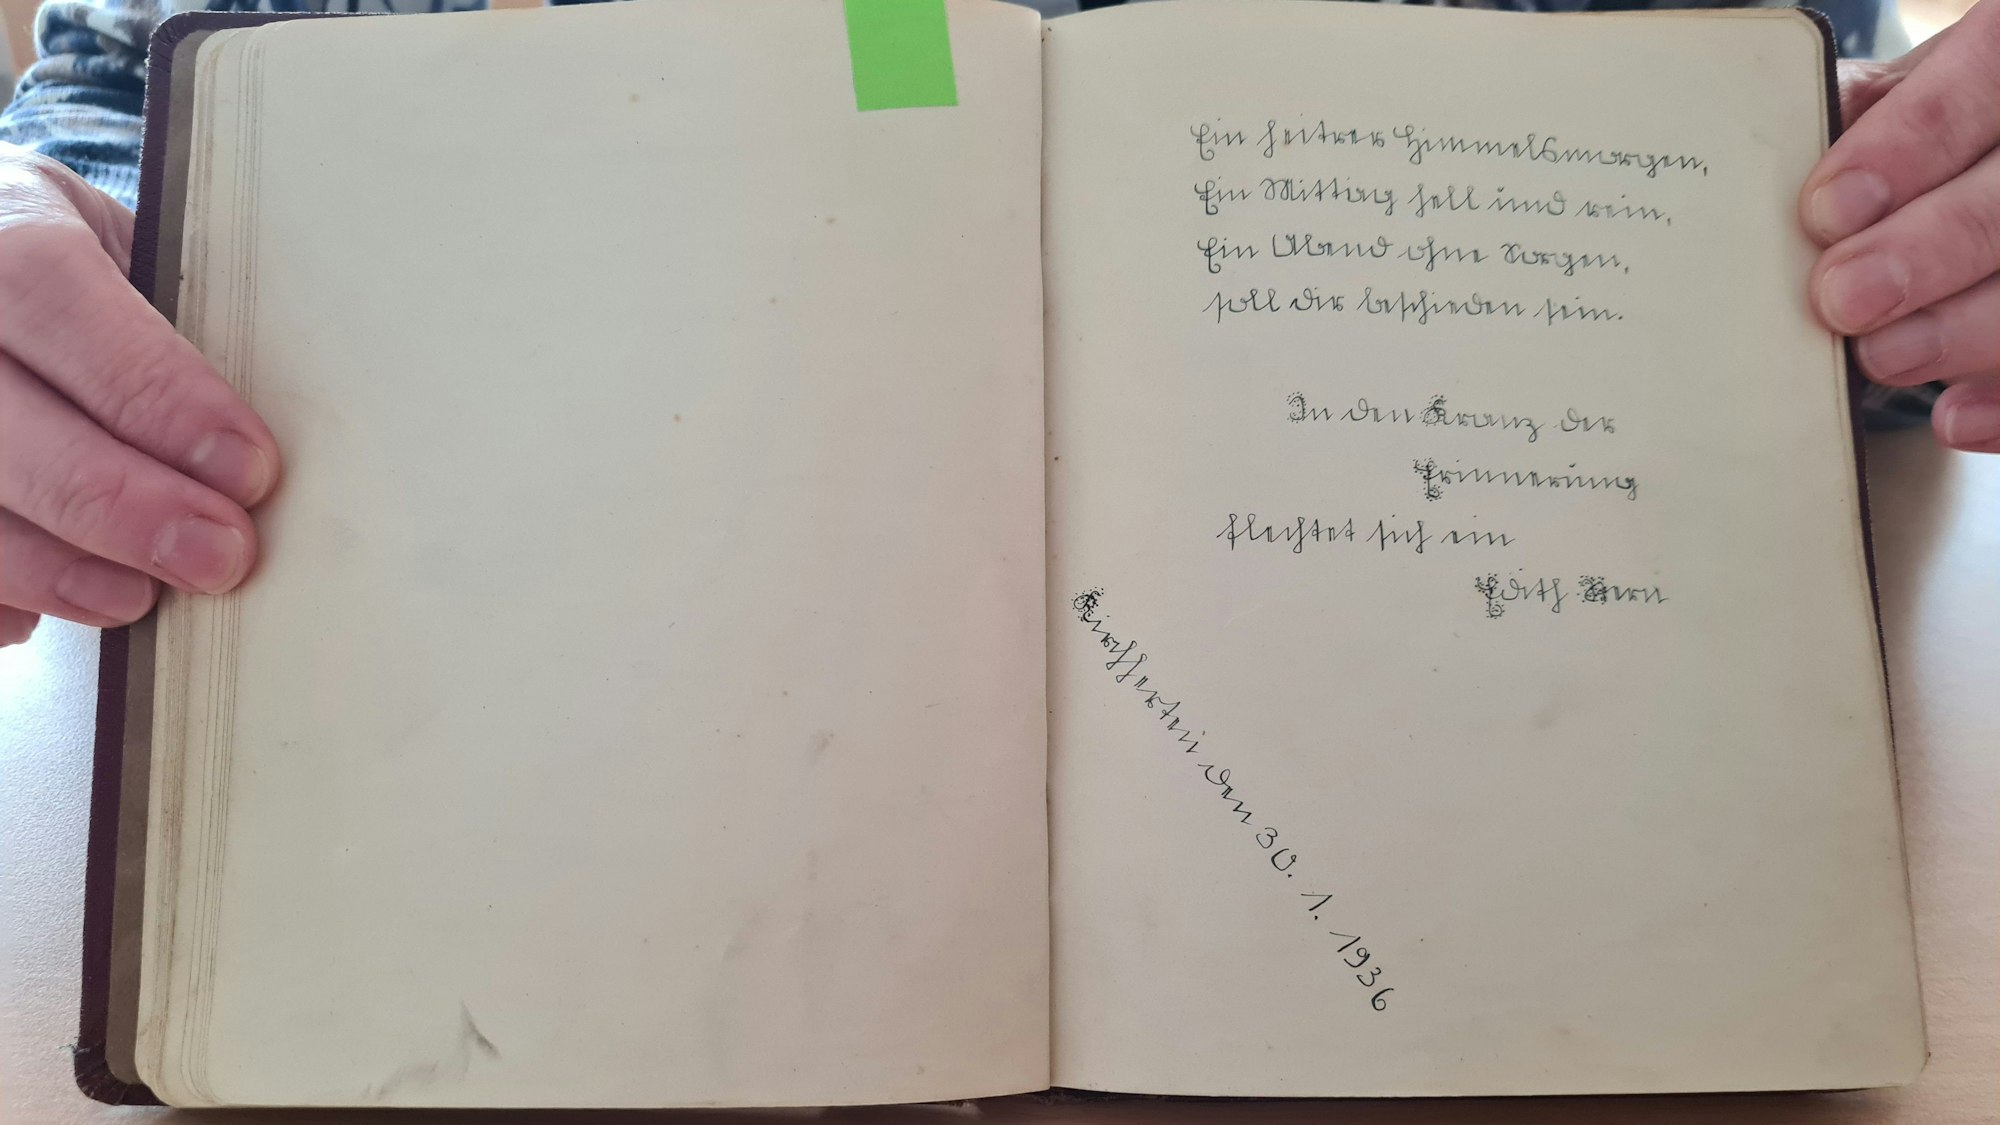 Ein heitrer Himmelsmorgen,
Ein Mittag hell und rein,
Ein Abend ohne Sorgen,
soll dir beschieden sein.
In den Kranz der
Erinnerung
flechtet sich ein
Edith
Kirchherten den 30. 1. 1936